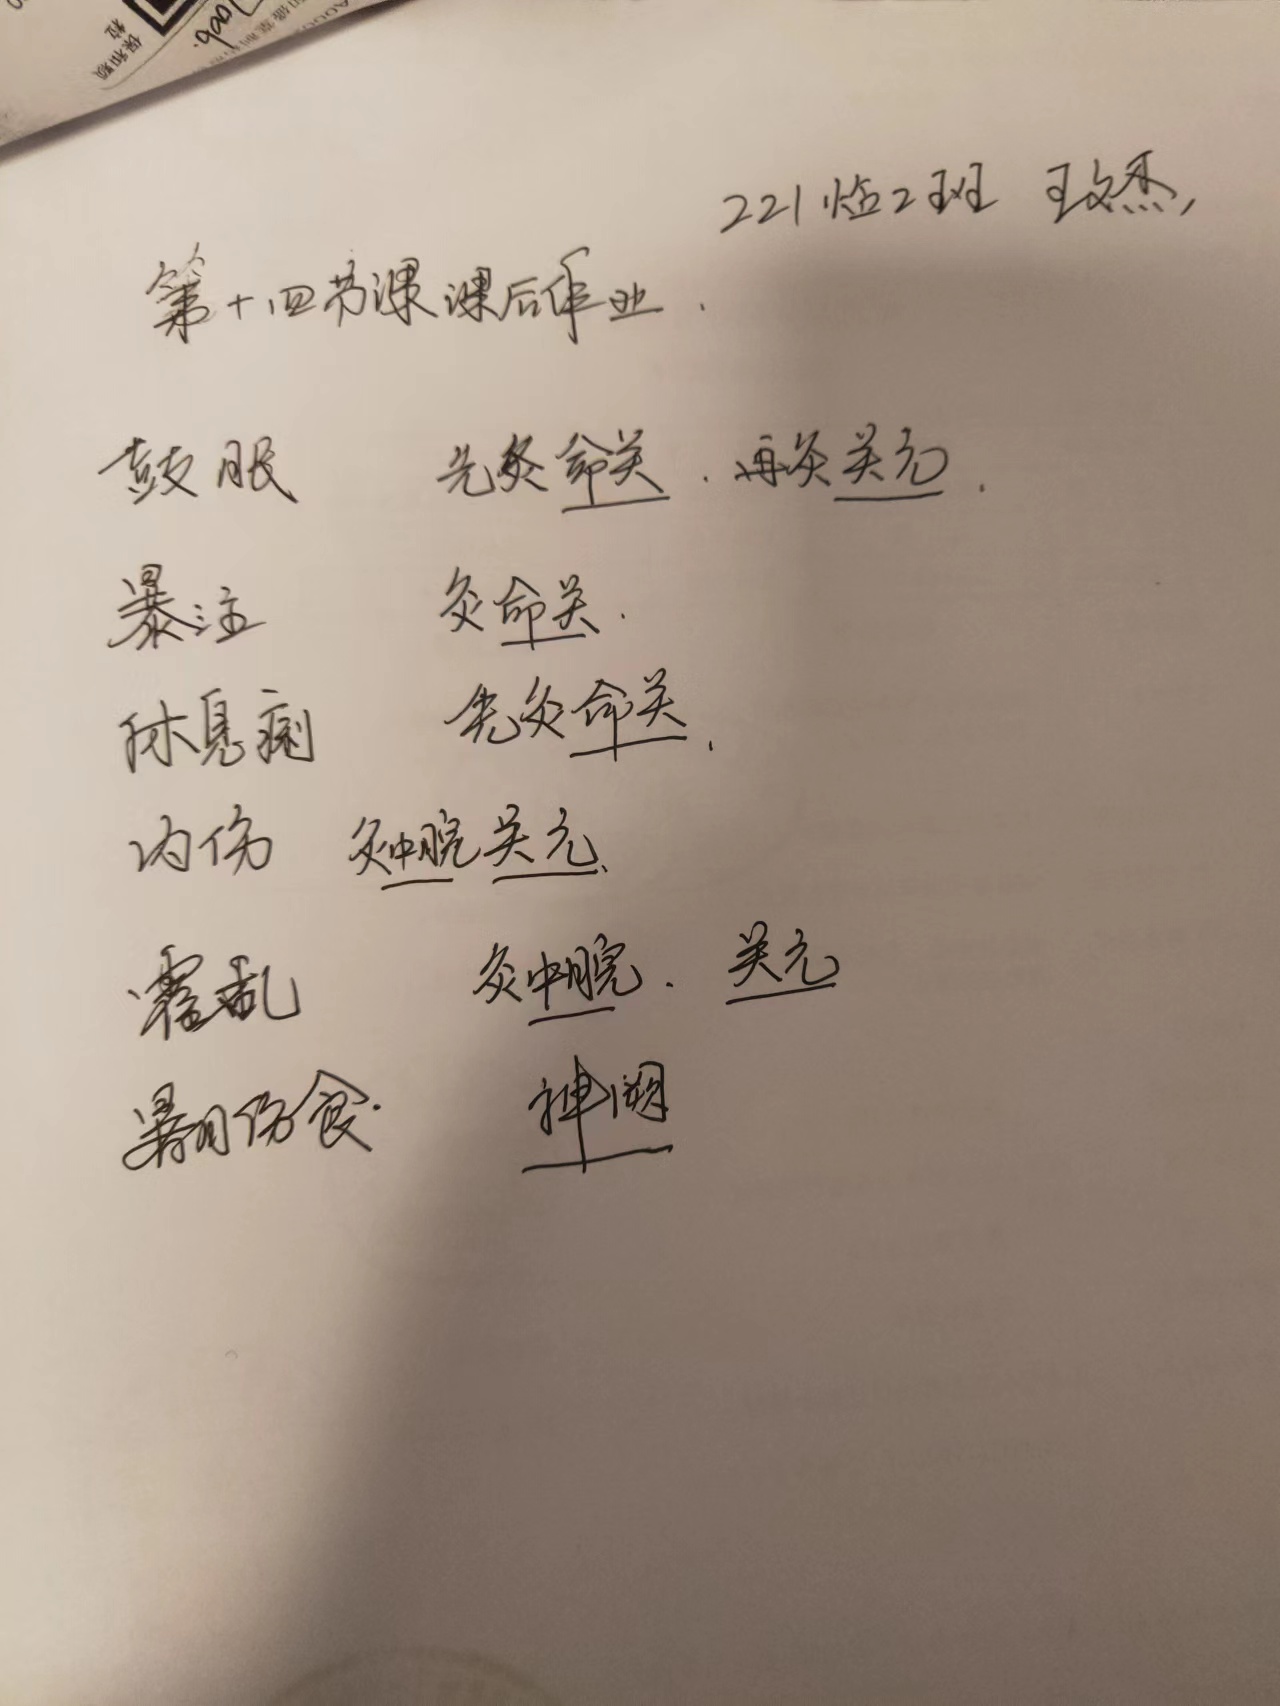 保和颗粒
221临2班 王文杰
第十四节课课后作业.
鼓胀 先灸命关.再灸关元.
暴注 灸命关.
休息痢 先灸命关.
内伤 灸中脘关元.
霍乱 灸中脘.关元
暑月伤食. 神阙